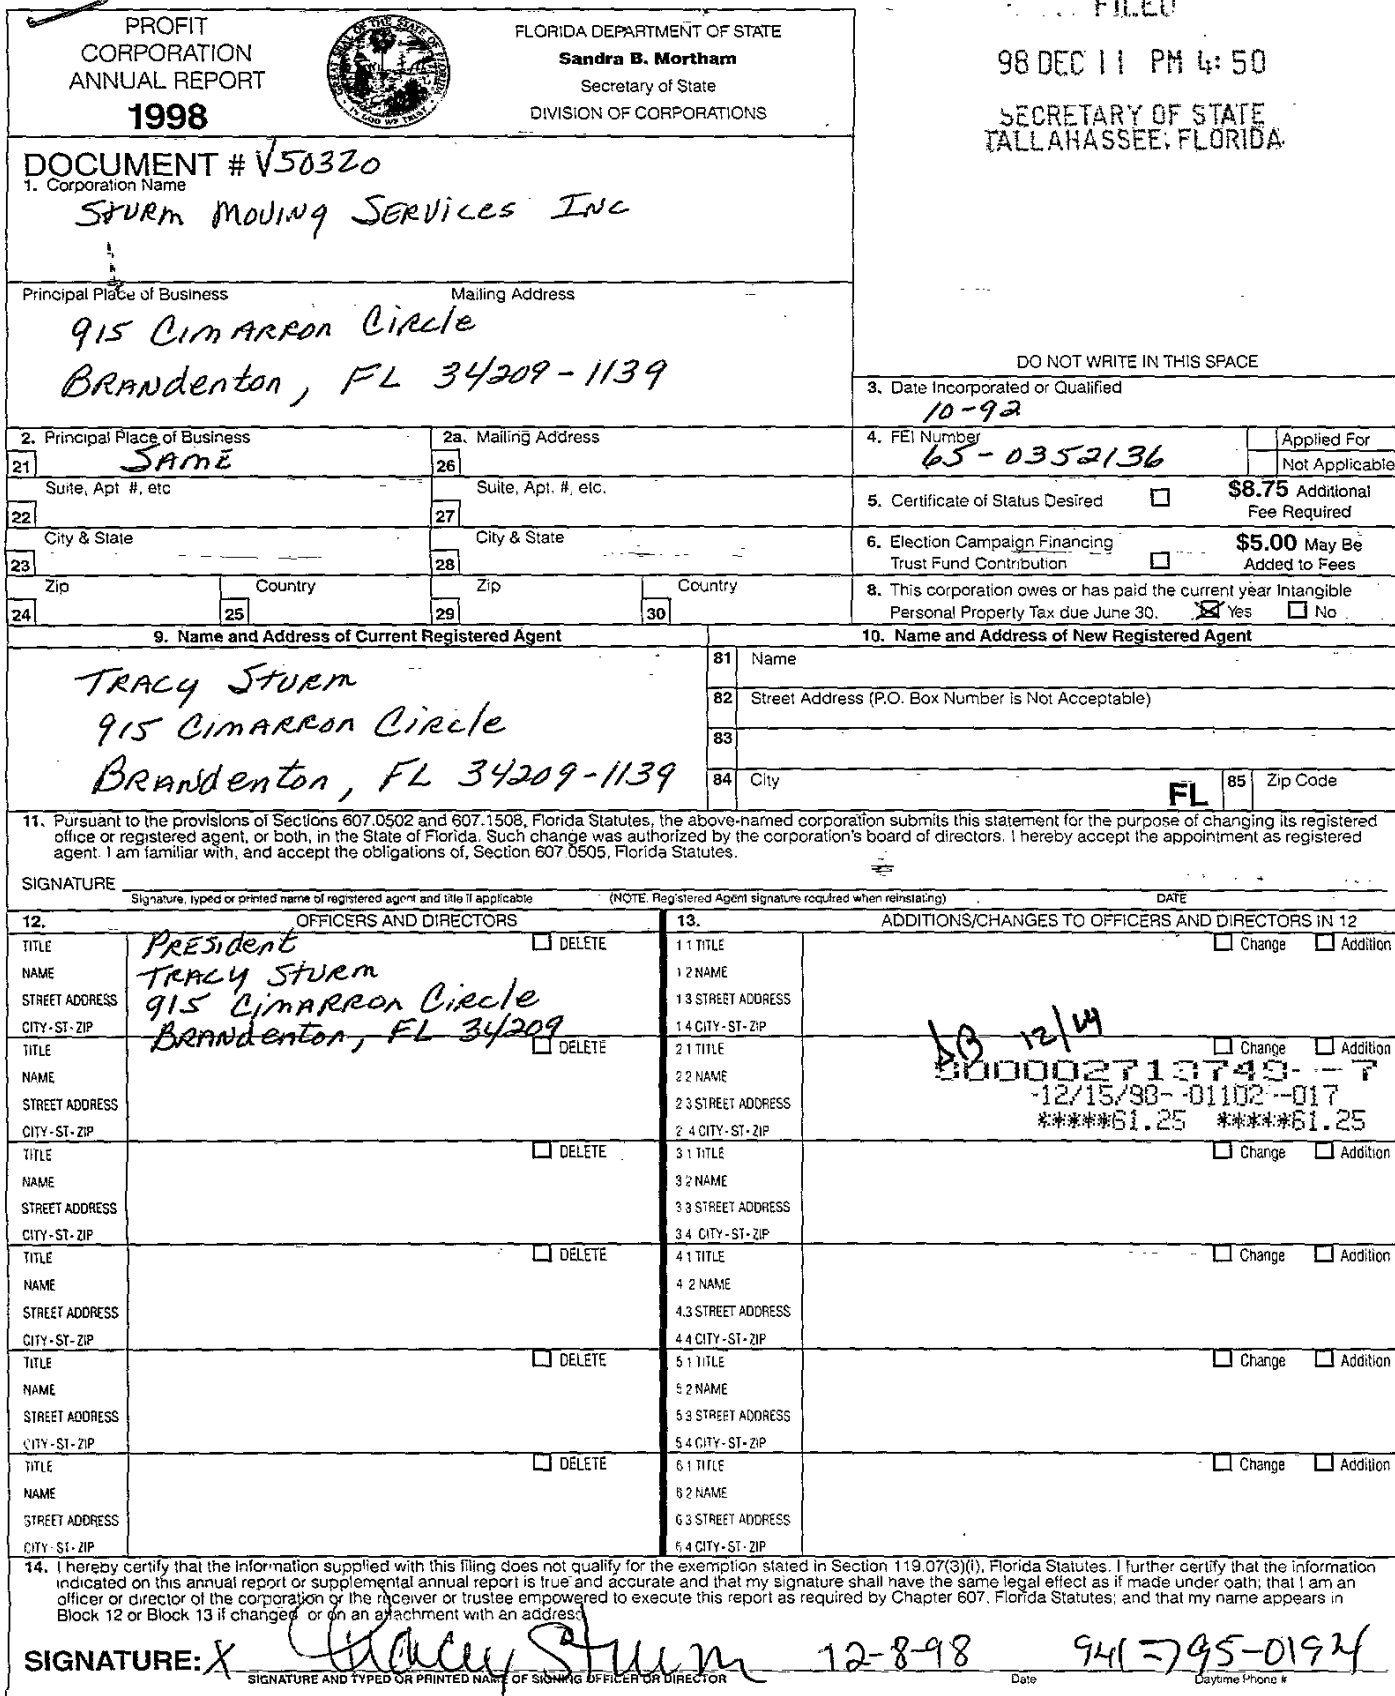 PROFIT
CORPORATION
ANNUAL REPORT
1998
FLORIDA DEPARTMENT OF STATE
Sandra B. Mortham
Secretary of State
DIVISION OF CORPORATIONS
FILED
98 DEC 11 PM 4:50
SECRETARY OF STATE
TALLAHASSEE, FLORIDA
DOCUMENT # V50320
1. Corporation Name
STURM MOVING SERVICES INC
Principal Place of Business Mailing Address
915 CIMARRON CIRCLE
BRANDENTON, FL 34209-1139
DO NOT WRITE IN THIS SPACE
3. Date Incorporated or Qualified
10-92
2. Principal Place of Business
21 SAME
2a. Mailing Address
26
4. FEI Number
65-0352136
Applied For
Not Applicable
Suite, Apt #, etc
22
Suite, Apt. #, etc.
27
5. Certificate of Status Desired
$8.75 Additional
Fee Required
City & State
23
City & State
28
6. Election Campaign Financing
Trust Fund Contribution
$5.00 May Be
Added to Fees
Zip Country Zip Country
24 25 29 30
8. This corporation owes or has paid the current year Intangible
Personal Property Tax due June 30. Yes No
9. Name and Address of Current Registered Agent
TRACY STURM
915 CIMARRON CIRCLE
BRANDENTON, FL 34209-1139
10. Name and Address of New Registered Agent
81 Name
82 Street Address (P.O. Box Number is Not Acceptable)
83
84 City FL 85 Zip Code
11. Pursuant to the provisions of Sections 607.0502 and 607.1508, Florida Statutes, the above-named corporation submits this statement for the purpose of changing its registered
office or registered agent, or both, in the State of Florida. Such change was authorized by the corporation's board of directors. I hereby accept the appointment as registered
agent. I am familiar with, and accept the obligations of, Section 607.0505, Florida Statutes.
SIGNATURE
Signature, typed or printed name of registered agent and title if applicable (NOTE. Registered Agent signature required when reinstating) DATE
12. OFFICERS AND DIRECTORS
13. ADDITIONS/CHANGES TO OFFICERS AND DIRECTORS IN 12
TITLE PRESIDENT DELETE
NAME TRACY STURM
STREET ADDRESS 915 CIMARRON CIRCLE
CITY-ST-ZIP BRANDENTON, FL 34209
1 1 TITLE Change Addition
1 2 NAME
1 3 STREET ADDRESS
1 4 CITY-ST-ZIP
12/14
TITLE DELETE
NAME
STREET ADDRESS
CITY-ST-ZIP
2 1 TITLE Change Addition
2 2 NAME
2 3 STREET ADDRESS -12/15/98--01102--017
2 4 CITY-ST-ZIP *****61.25 *****61.25
TITLE DELETE
NAME
STREET ADDRESS
CITY-ST-ZIP
3 1 TITLE Change Addition
3 2 NAME
3 3 STREET ADDRESS
3 4 CITY-ST-ZIP
TITLE DELETE
NAME
STREET ADDRESS
CITY-ST-ZIP
4 1 TITLE Change Addition
4 2 NAME
4.3 STREET ADDRESS
4 4 CITY-ST-ZIP
TITLE DELETE
NAME
STREET ADDRESS
CITY-ST-ZIP
5 1 TITLE Change Addition
5 2 NAME
5 3 STREET ADDRESS
5 4 CITY-ST-ZIP
TITLE DELETE
NAME
STREET ADDRESS
CITY-ST-ZIP
6 1 TITLE Change Addition
6 2 NAME
6 3 STREET ADDRESS
6 4 CITY-ST-ZIP
14. I hereby certify that the information supplied with this filing does not qualify for the exemption stated in Section 119.07(3)(i), Florida Statutes. I further certify that the information
indicated on this annual report or supplemental annual report is true and accurate and that my signature shall have the same legal effect as if made under oath; that I am an
officer or director of the corporation or the receiver or trustee empowered to execute this report as required by Chapter 607, Florida Statutes; and that my name appears in
Block 12 or Block 13 if changed, or on an attachment with an address.
SIGNATURE: X Tracy Sturm 12-8-98 941-795-0194
SIGNATURE AND TYPED OR PRINTED NAME OF SIGNING OFFICER OR DIRECTOR Date Daytime Phone #